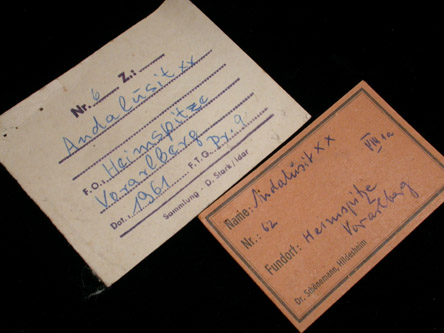 Nr. 6 Z.:
Andalusit xx
F.O.: Heimspitze
Vorarlberg
Dat.: 1961 F.T.O. Pr. 9.-
Sammlung - D. Stark / Idar
Name: Andalusit x x
Nr.: 62 VIII 1a
Fundort: Heimspitze
Vorarlberg
Dr. Schönemann, Hildesheim